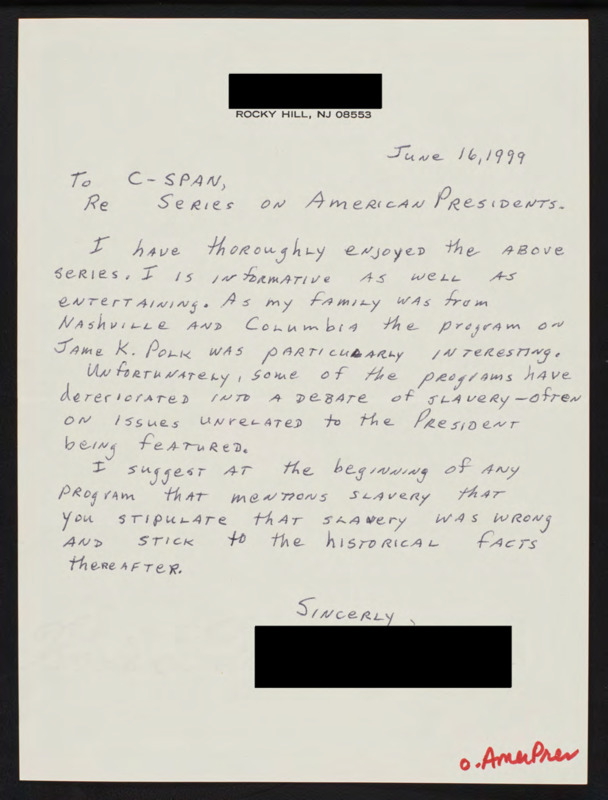 ROCKY HILL, NJ 08553
June 16, 1999
To C-SPAN,
Re Series on American Presidents.
I have thoroughly enjoyed the above
series. I is informative as well as
entertaining. As my family was from
Nashville and Columbia the program on
Jame K. Polk was particularly interesting.
Unfortunately, some of the programs have
deteriorated into a debate of slavery—often
on issues unrelated to the President
being featured.
I suggest at the beginning of any
program that mentions slavery that
you stipulate that slavery was wrong
and stick to the historical facts
thereafter.
Sincerly,
o. AmerPres